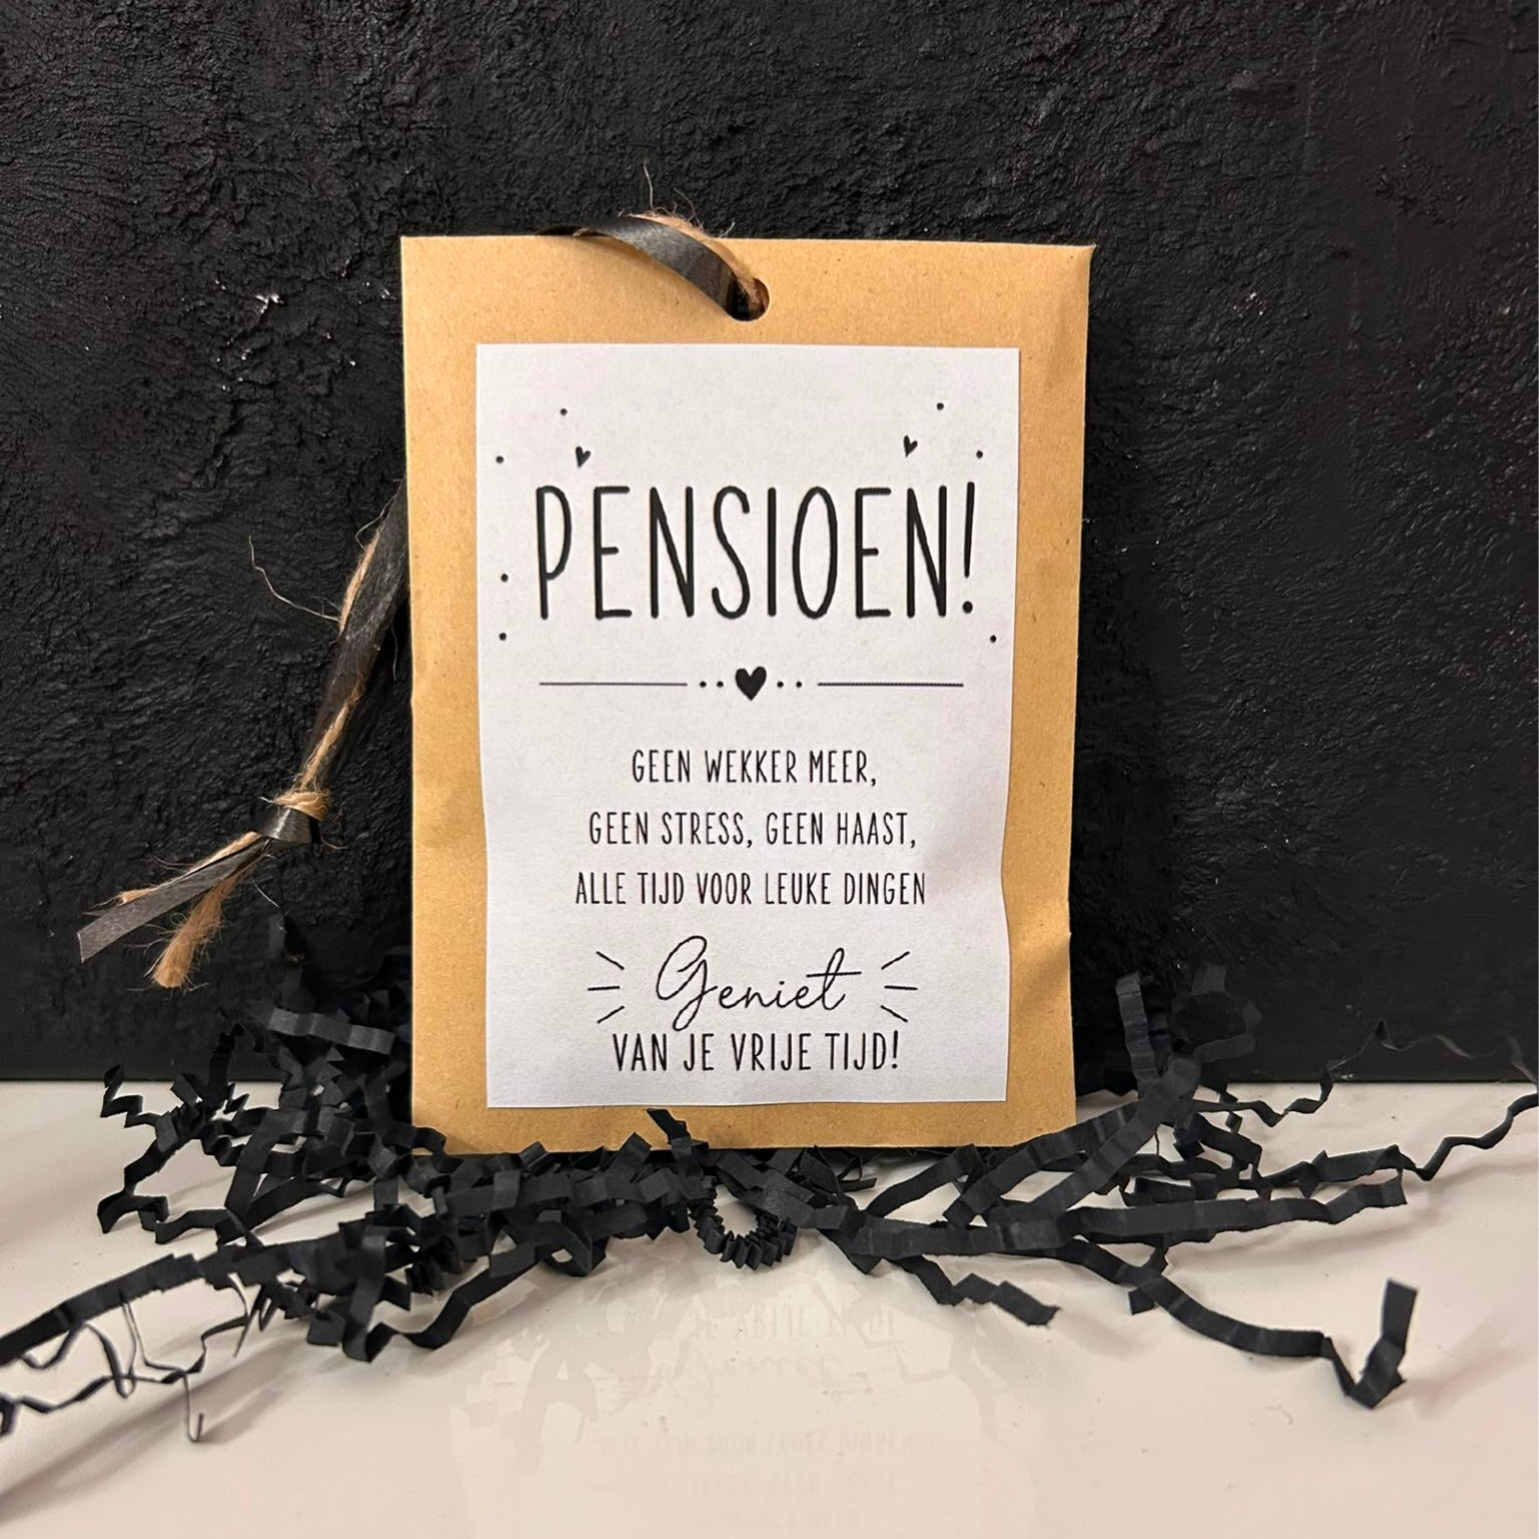 PENSIOEN!
GEEN WEKKER MEER,
GEEN STRESS, GEEN HAAST,
ALLE TIJD VOOR LEUKE DINGEN
Geniet
VAN JE VRIJE TIJD!